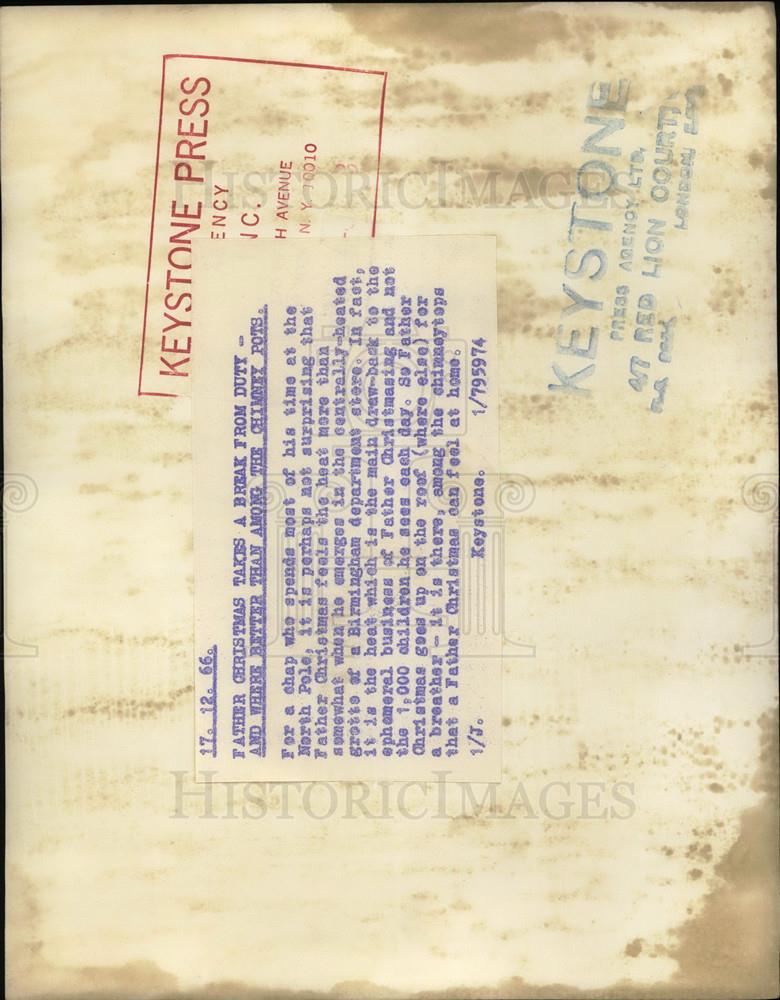 KEYSTONE PRESS
ENCY
NC.
H AVENUE
N. Y. 10010
17. 12. 66.
FATHER CHRISTMAS TAKES A BREAK FROM DUTY -
AND WHERE BETTER THAN AMONG THE CHIMNEY POTS.
For a chap who spends most of his time at the
North Pole, it is perhaps not surprising that
Father Christmas feels the heat more than
somewhat when he emerges in the centrally-heated
grotto of a Birmingham department store. In fact,
it is the heat which is the main draw-back to the
ephemeral business of Father Christmasing and not
the 1,000 children he sees each day. So Father
Christmas goes up on the roof (where else) for
a breather - it is there, among the chimneytops
that a Father Christmas can feel at home.
1/J. Keystone. 1/795974
KEYSTONE
PRESS AGENCY LTD.
RED LION COURT,
LONDON
HISTORICIMAGES
HISTORICIMAGES